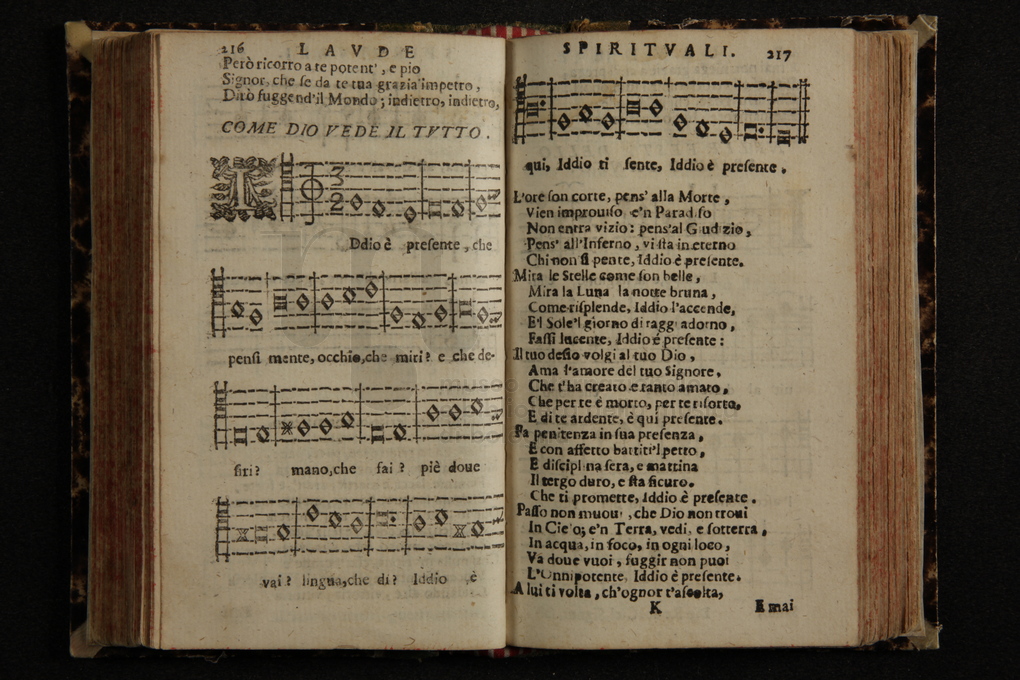 216 LAVDE
Però ricorro a te potent', e pio
Signor, che se da te tua grazia impetro,
Dirò fuggend'il Mondo; indietro, indietro,
COME DIO VEDE IL TVTTO.
IDdio è presente, che
pensi mente, occhio,che miri? e che de-
siri? mano,che fai? piè doue
vai? lingua,che di? Iddio è
SPIRITVALI. 217
qui, Iddio ti sente, Iddio è presente.
L'ore son corte, pens' alla Morte,
Vien improuiso e'n Paradiso
Non entra vizio: pens'al Giudizio,
Pens' all'Inferno, vi sta in eterno
Chi non si pente, Iddio è presente.
Mira le Stelle come son belle,
Mira la Luna la notte bruna,
Come risplende, Iddio l'accende,
E'l Sole'l giorno di raggi adorno,
Fassi lucente, Iddio è presente:
Il tuo desio volgi al tuo Dio,
Ama l'amore del tuo Signore,
Che t'ha creato e tanto amato,
Che per te è morto, per te risorto,
E di te ardente, è qui presente.
Fa penitenza in sua presenza,
E con affetto battiti'l petto,
E disciplina sera, e mattina
Il tergo duro, e sta sicuro.
Che ti promette, Iddio è presente.
Passo non muoui, che Dio non troui
In Cielo; e'n Terra, vedi, e sotterra,
In acqua, in foco, in ogni loco,
Va doue vuoi, fuggir non puoi
L'Onnipotente, Iddio è presente.
A lui ti volta, ch'ognor t'ascolta,
K E mai